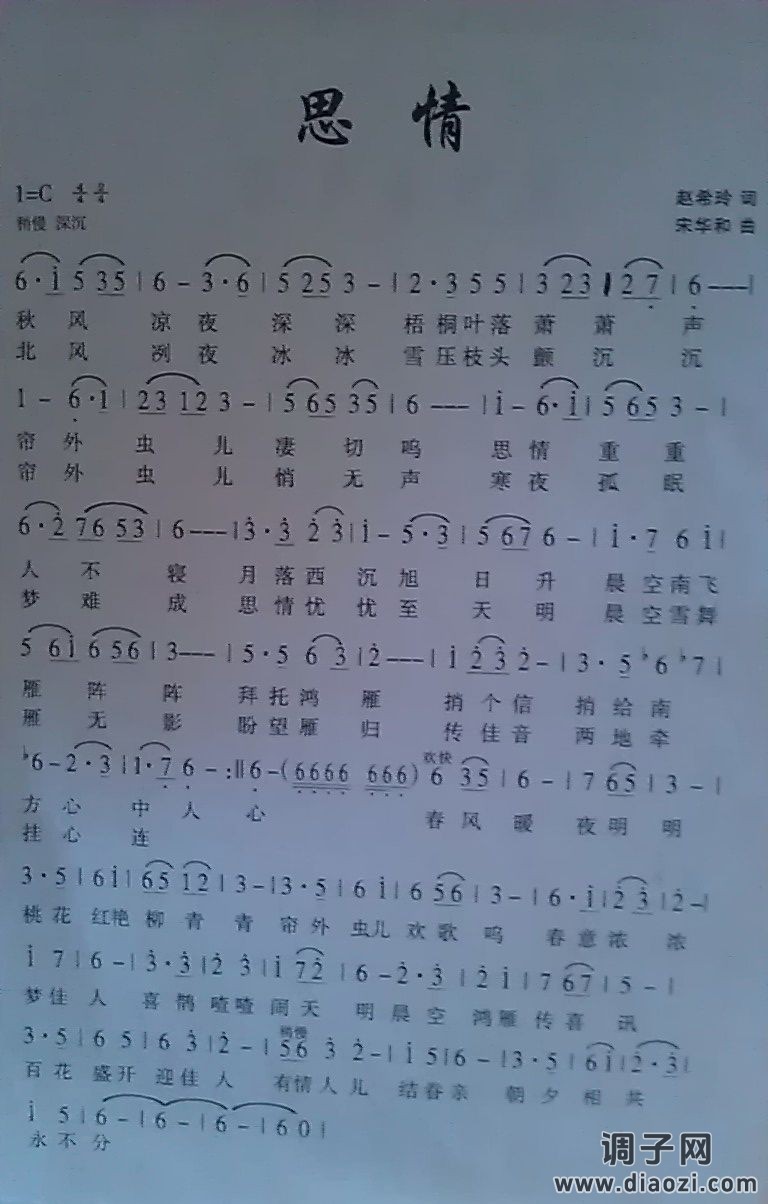 思 情
1=C
赵希玲 词
稍慢 深沉
宋华和 曲
6·i 5 35 | 6 - 3·6 | 5 25 3 - | 2·3 5 5 | 3 23 | 2 7 | 6 --- |
秋 风 凉 夜 深 深 梧 桐 叶 落 萧 萧 声
北 风 冽 夜 冰 冰 雪 压 枝 头 颤 沉 沉
1 - 6·1 | 23 12 3 - | 5 65 35 | 6 --- | i - 6·i | 5 65 3 - |
帘 外 虫 儿 凄 切 鸣 思 情 重 重
帘 外 虫 儿 悄 无 声 寒 夜 孤 眠
6·2 76 53 | 6 --- | 3·3 2 3 | i - 5·3 | 5 67 6 - | i·7 6 i |
人 不 寝 月 落 西 沉 旭 日 升 晨 空 南 飞
梦 难 成 思 情 忧 忧 至 天 明 晨 空 雪 舞
5 6i 656 | 3 --- | 5·5 6 3 | 2 --- | i 23 2 - | 3·5 ♭6 ♭7 |
雁 阵 阵 拜 托 鸿 雁 捎 个 信 捎 给 南
雁 无 影 盼 望 雁 归 传 佳 音 两 地 牵
♭6 - 2·3 | 1·7 6 - :|| 6 - (6666 666) 欢快 6 35 | 6 - | 7 65 | 3 - |
方 心 中 人 心 春 风 暖 夜 明 明
挂 心 连
3·5 | 6 i | 65 12 | 3 - | 3·5 | 6 i | 6 56 | 3 - | 6·i | 2 3 | 2 - |
桃 花 红艳 柳 青 青 帘 外 虫儿 欢 歌 鸣 春 意 浓 浓
i 7 | 6 - | 3·3 | 2 3 | i 72 | 6 - 2·3 | 2 i | 7 67 | 5 - |
梦 佳 人 喜 鹊 喳喳 闹 天 明 晨 空 鸿雁 传 喜 讯
3·5 | 6 5 | 6 3 | 2 - | 稍慢 56 3 2 - | i 5 | 6 - | 3·5 | 6i | 2·3 |
百 花 盛开 迎 佳 人 有情 人 儿 结春亲 朝 夕 相 共
i 5 | 6 - | 6 - | 6 - | 6 0 |
永 不 分
调子网
www.diaozi.com